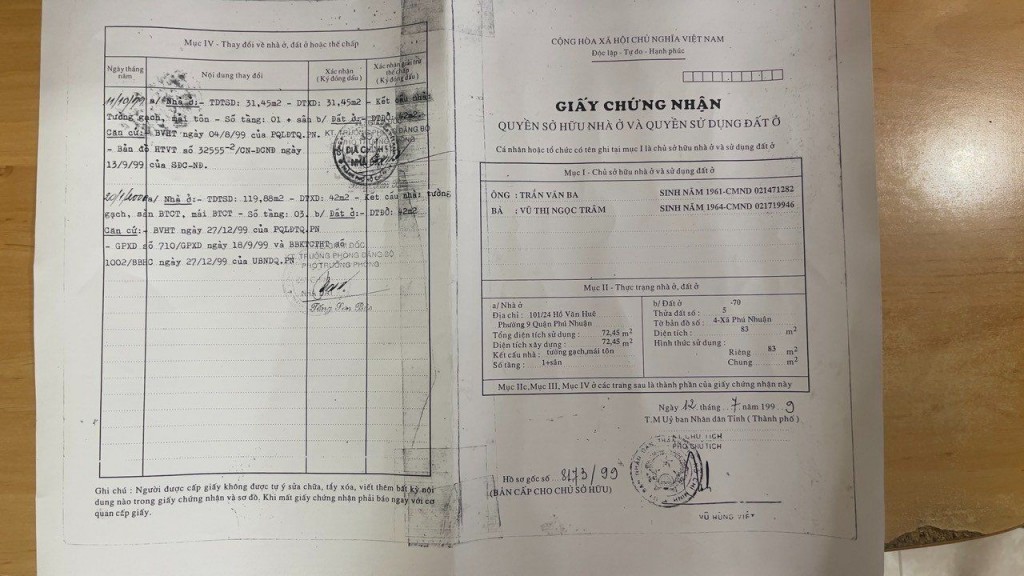 Mục IV - Thay đổi về nhà ở, đất ở hoặc thế chấp
Ngày tháng năm
Nội dung thay đổi
Xác nhận (Ký đóng dấu)
Xác nhận giải trừ thế chấp (Ký đóng dấu)
11/10/99 a/ Nhà ở:- TDTSD: 31,45m2 - DTXD: 31,45m2 - Kết cấu nhà:
Tường gạch, mái tôn - Số tầng: 01 + sân b/ Đất ở:- DTĐỞ: 42m2
Căn cứ:- BVHT ngày 04/8/99 của PQLĐTQ.PN.
- Bản đồ HTVT số 32555-2/CN-ĐCNĐ ngày
13/9/99 của SĐC-NĐ.
ĐỊA CHÍNH
NHÀ ĐẤT
20/1/2000 a/ Nhà ở:- TDTSD: 119,88m2 - DTXD: 42m2 - Kết cấu nhà: tường
gạch, sàn BTCT, mái BTCT - Số tầng: 03. b/ Đất ở:- DTĐỞ: 42m2
Căn cứ:- BVHT ngày 27/12/99 của PQLĐTQ.PN
- GPXD số 710/GPXD ngày 18/9/99 và BBKTCTHT số
1002/BBHC ngày 27/12/99 của UBNDQ.PN
KT.TRƯỞNG PHÒNG ĐĂNG BỘ
PHÓ TRƯỞNG PHÒNG
Ghi chú : Người được cấp giấy không được tự ý sửa chữa, tẩy xóa, viết thêm bất kỳ nội
dung nào trong giấy chứng nhận và sơ đồ. Khi mất giấy chứng nhận phải báo ngay với cơ
quan cấp giấy.
CỘNG HÒA XÃ HỘI CHỦ NGHĨA VIỆT NAM
Độc lập - Tự do - Hạnh phúc
GIẤY CHỨNG NHẬN
QUYỀN SỞ HỮU NHÀ Ở VÀ QUYỀN SỬ DỤNG ĐẤT Ở
Cá nhân hoặc tổ chức có tên ghi tại mục I là chủ sở hữu nhà ở và sử dụng đất ở
Mục I - Chủ sở hữu nhà ở và sử dụng đất ở
ÔNG : TRẦN VĂN BA SINH NĂM 1961-CMND 021471282
BÀ : VŨ THỊ NGỌC TRÂM SINH NĂM 1964-CMND 021719946
Mục II - Thực trạng nhà ở, đất ở
a/ Nhà ở
Địa chỉ : 101/24 Hồ Văn Huê
Phường 9 Quận Phú Nhuận
Tổng diện tích sử dụng : 72,45 m2
Diện tích xây dựng : 72,45 m2
Kết cấu nhà : tường gạch,mái tôn
Số tầng : 1+sân
b/ Đất ở -70
Thửa đất số : 5
Tờ bản đồ số : 4-Xã Phú Nhuận
Diện tích : 83 m2
Hình thức sử dụng :
Riêng 83 m2
Chung m2
Mục IIc,Mục III, Mục IV ở các trang sau là thành phần của giấy chứng nhận này
Ngày 12 tháng 7 năm 199 9
T.M Uỷ ban Nhân dân Tỉnh ( Thành phố )
KT.CHỦ TỊCH
PHÓ CHỦ TỊCH
Hồ sơ gốc số 8173/99
(BẢN CẤP CHO CHỦ SỞ HỮU)
VŨ HÙNG VIỆT